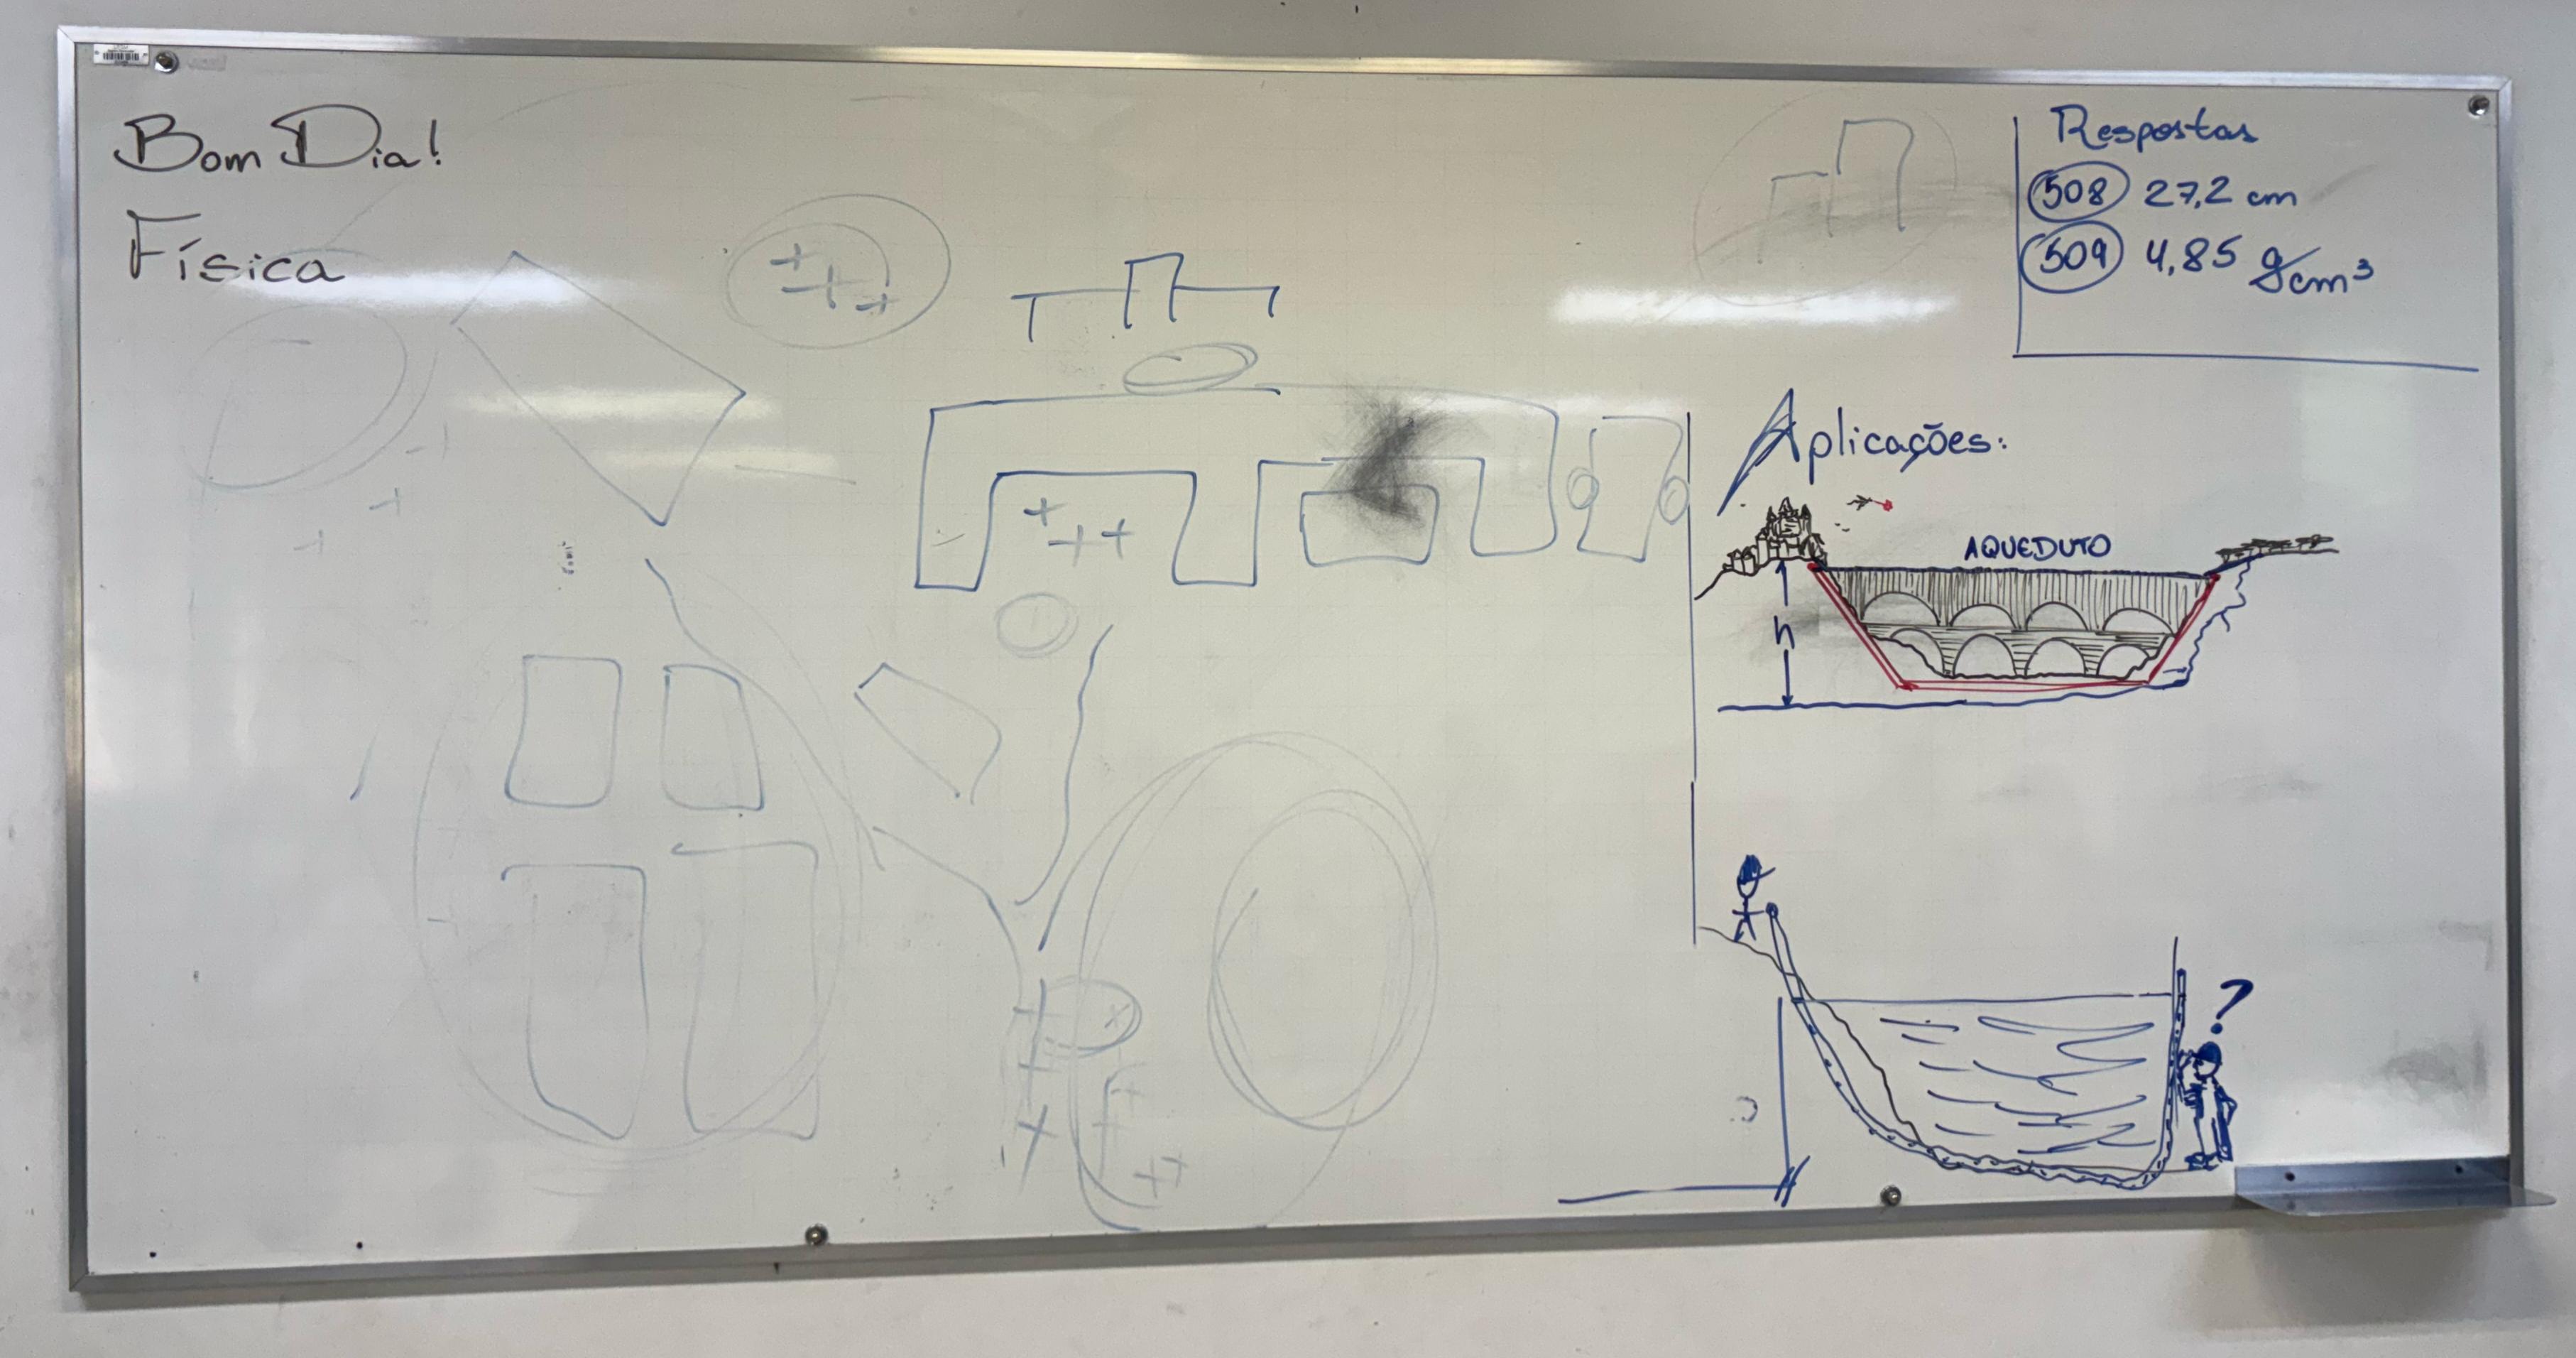 Bom Dia!
Física
Respostas
508 27,2 cm
509 4,85 g/cm³
Aplicações:
AQUEDUTO
h
?